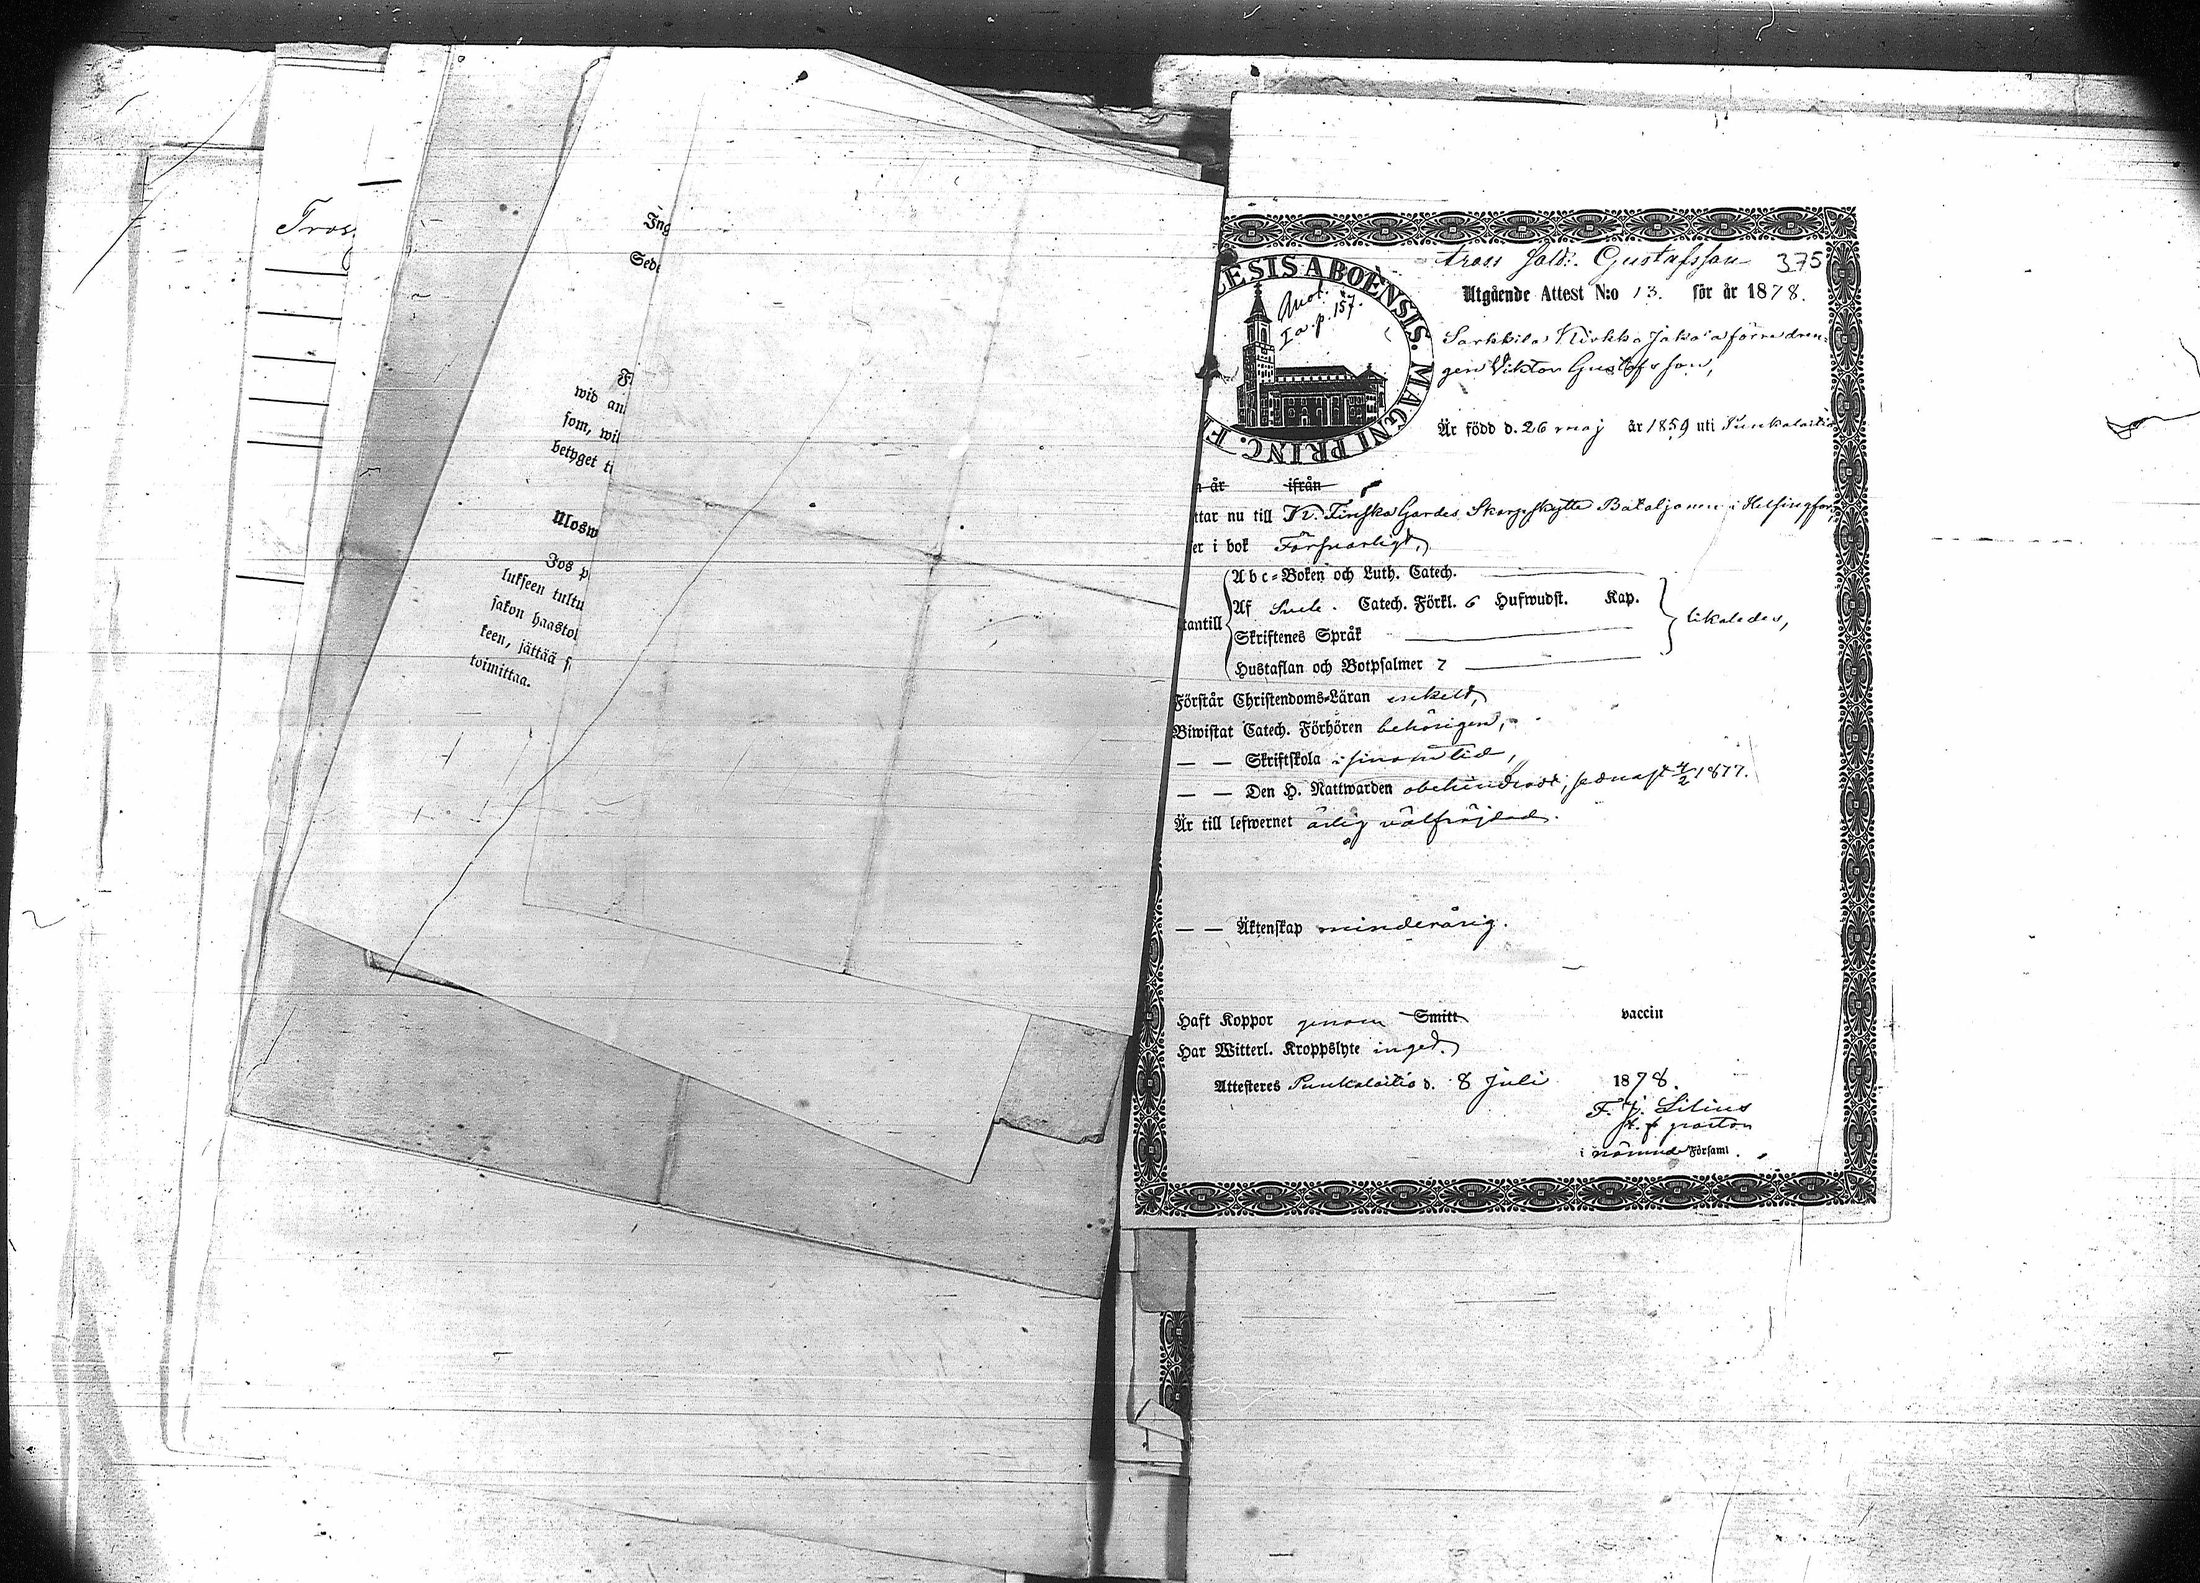 Tross
Ing
Sede
F
wid an
som, wil
betyget ti
Ulosw
Jos p
lukseen tultu
jakon haastol
keen, jättää s
toimittaa.
tross sold. Gustafsson 375
LESIS ABOËNSIS. MAGNI PRINC. FI
Anot.
I a. p. 157.
Utgående Attest N:o 13. för år 1878.
Sarkkila Kirkko Jako'a förre drän-
gen Viktor Gustafsson,
Är född d. 26 maj år 1859 uti Punkalaitio
n år ifrån
ttar nu till K. Finska Gardes Skarpskytte Bataljonen i Helsingfors,
er i bok Försvarligt,
Abc-Boken och Luth. Catech.
Af Sveb. Catech. Förkl. 6 Hufwudst. Kap.
tantill
likaledes,
Skriftenes Språk
Hustaflan och Botpsalmer 7
Förstår Christendoms-Läran enkelt,
Biwistat Catech. Förhören behörigen,
— — Skriftskola i sinom tid,
— — Den H. Nattwarden obehindradt, sednast 4/2 1877.
Är till lefwernet ärlig välfräjdad.
— — Äktenskap minderårig.
Haft Koppor genom Smitt vaccin
Har Witterl. Kroppslyte inget.
Attesteres Punkalaitio d. 8 Juli 1878.
F. J. Lilius
pastor
i nämnde Församl.